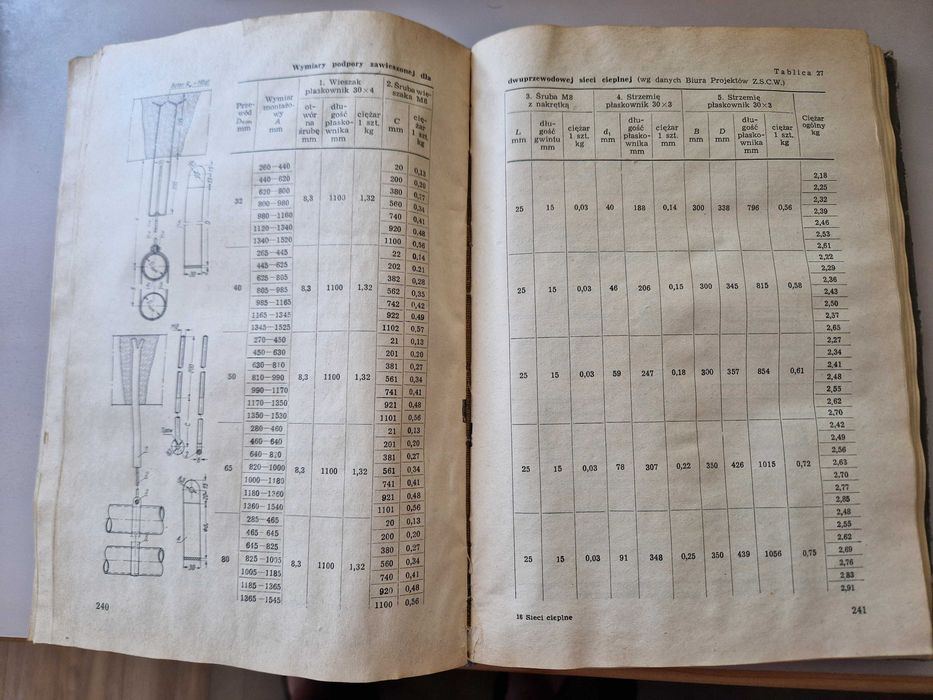 Wymiary podpory zawieszonej dla
Prze-wód Dnom mm | Wymiar montażo-wy A mm | 1. Wieszak płaskownik 30×4 | 2. Śruba wie-szaka M8
ot-wór na śrubę mm | dłu-gość płasko-wnika mm | ciężar 1 szt. kg | C mm | cię-żar 1 szt. kg
260—440 20 0,13
440—620 200 0,20
620—800 380 0,27
32 800—980 8,3 1100 1,32 560 0,34
980—1160 740 0,41
1120—1340 920 0,48
1340—1520 1100 0,56
265—445 22 0,14
445—625 202 0.21
625—805 382 0,28
40 805—985 8,3 1100 1,32 562 0,35
985—1165 742 0,42
1165—1345 922 0,49
1345—1525 1102 0,57
270—450 21 0,13
450—630 201 0,20
630—810 381 0,27
50 810—990 8,3 1100 1,32 561 0,34
990—1170 741 0,41
1170—1350 921 0,48
1350—1530 1101 0,56
280—460 21 0,13
460—640 201 0,20
640—820 381 0,27
65 820—1000 8,3 1100 1,32 561 0,34
1000—1180 741 0,41
1180—1360 921 0,48
1360—1540 1101 0,56
285—465 20 0,13
465—645 200 0,20
645—825 380 0,27
80 825—1005 8,3 1100 1,32 560 0,34
1005—1185 740 0,41
1185—1365 920 0,48
1365—1545 1100 0,56
240
Tablica 27
dwuprzewodowej sieci cieplnej (wg danych Biura Projektów Z.S.C.W.)
3. Śruba M8 z nakrętką | 4. Strzemię płaskownik 30×3 | 5. Strzemię płaskownik 30×3 | Ciężar ogólny kg
L mm | dłu-gość gwintu mm | ciężar 1 szt. kg | d₁ mm | dłu-gość płasko-wnika mm | ciężar 1 szt. kg | B mm | D mm | dłu-gość płasko-wnika mm | ciężar 1 szt. kg
2,18
2,25
2,32
25 15 0,03 40 188 0,14 300 338 796 0,56 2,39
2,46
2,53
2,61
2,22
2,29
2,36
25 15 0,03 46 206 0,15 300 345 815 0,58 2,43
2,50
2,57
2,65
2,27
2,34
2,41
25 15 0,03 59 247 0,18 300 357 854 0,61 2,48
2,55
2,62
2,70
2,42
2,49
2,56
25 15 0,03 78 307 0,22 350 426 1015 0,72 2,63
2,70
2,77
2,85
2,48
2,55
2,62
25 15 0,03 91 348 0,25 350 439 1056 0,75 2,69
2,76
2 83
2,91
16 Sieci cieplne
241